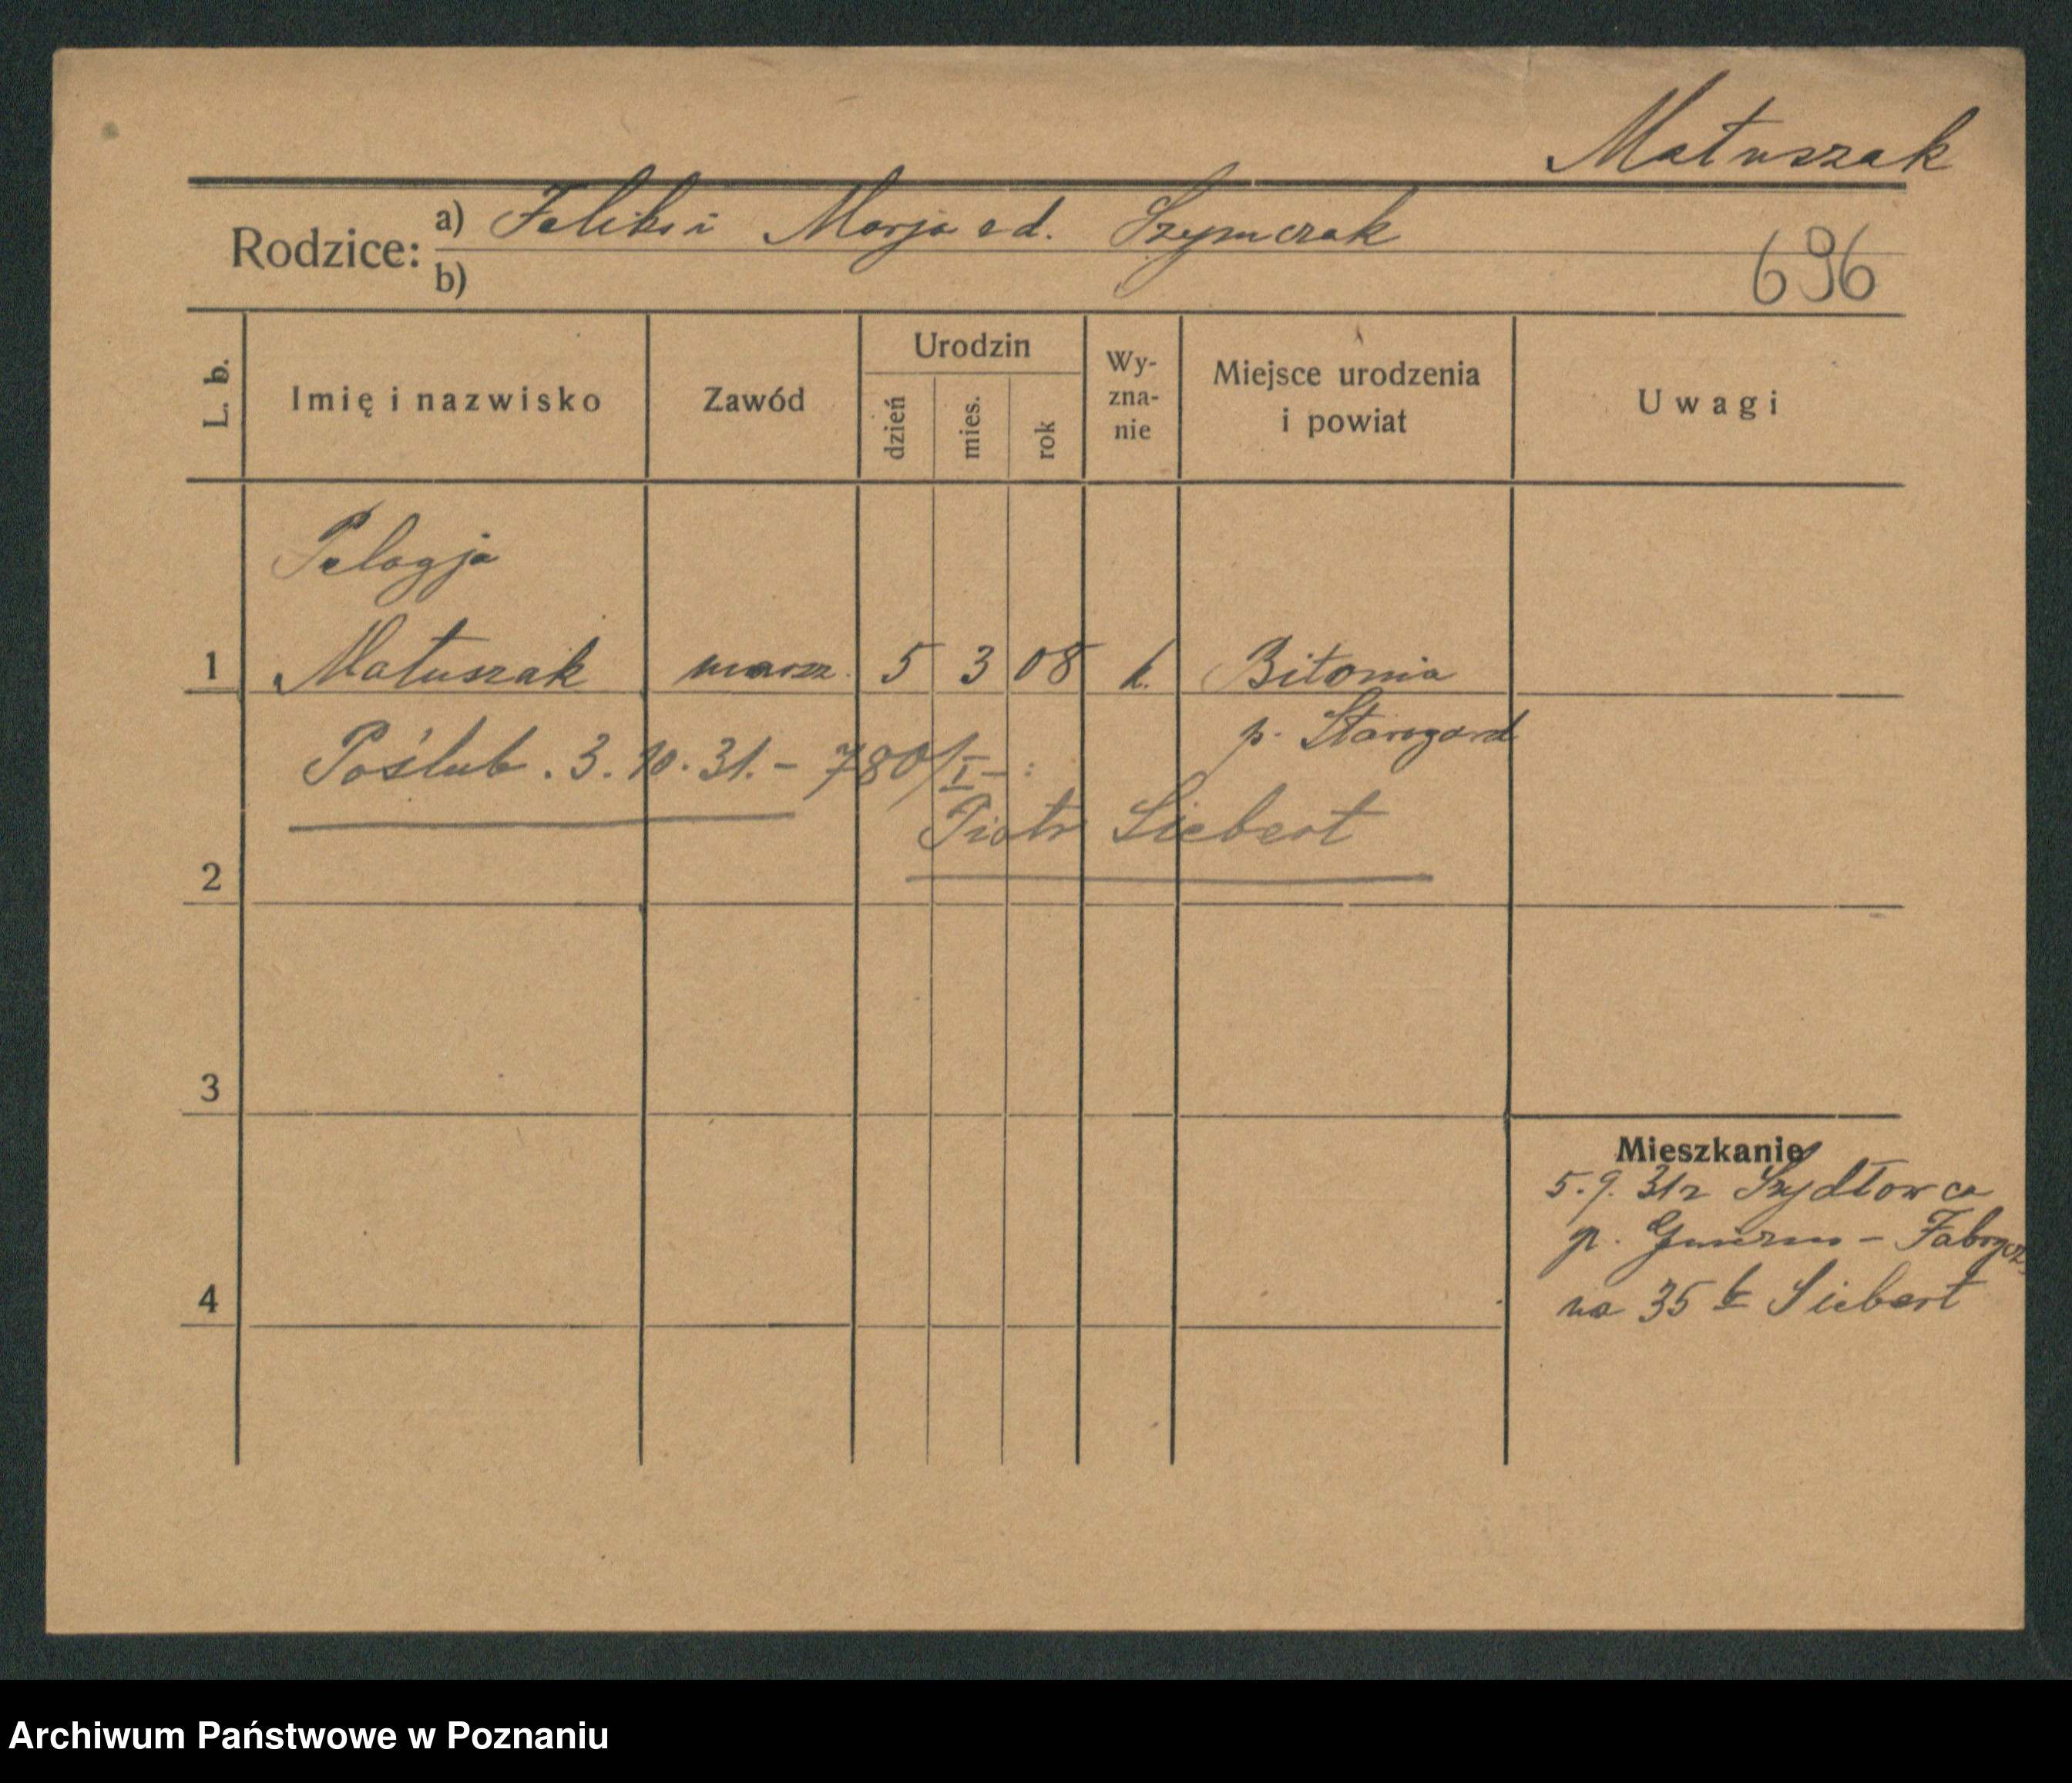 Matuszak
Rodzice: a) Feliks i Marja od. Szymczak
b)
696
L. b.
Imię i nazwisko
Zawód
Urodzin
dzień
mies.
rok
Wy-
zna-
nie
Miejsce urodzenia
i powiat
Uwagi
Pelagja
1 Matuszak 5 3 08 k. Bitonia
p. Starogard
Poślub. 3.10.31. – 780/I – :
Piotr Siebert
2
3
Mieszkanie
5.9.31 z Szydłowca
p. Gniezno – Fabrycz
na 35 b Siebert
4
Archiwum Państwowe w Poznaniu